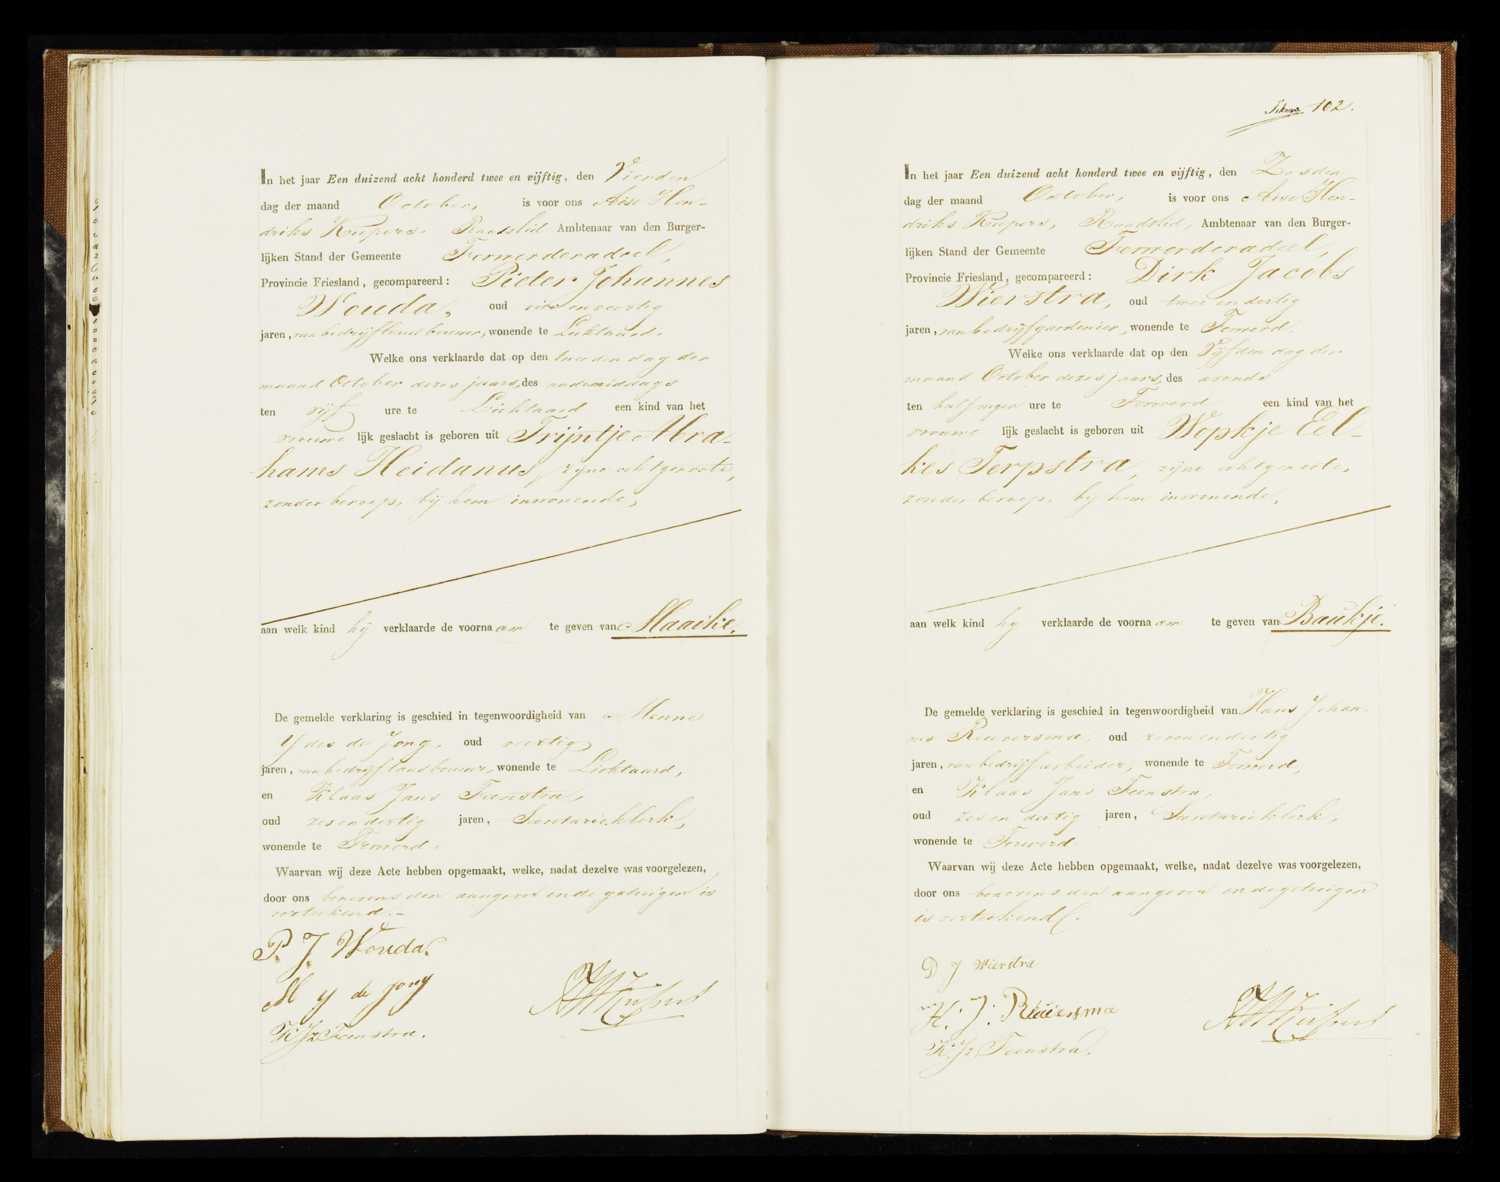 In het jaar Een duizend acht honderd twee en vijftig, den Vierden
dag der maand October, is voor ons Aise Hen-
driks Kuipers, Raadslid Ambtenaar van den Burger-
lijken Stand der Gemeente Ferwerderadeel,
Provincie Friesland, gecompareerd: Pieter Johannes
Wouda, oud een en veertig
jaren, van bedrijf landbouwer, wonende te Lichtaard.
Welke ons verklaarde dat op den tweeden dag der
maand October dezes jaars, des namiddags
ten vijf ure te Lichtaard een kind van het
vrouwe lijk geslacht is geboren uit Trijntje Abra-
hams Heidanus, zijne echtgenoote,
zonder beroep, bij hem inwonende,
aan welk kind hij verklaarde de voorna am te geven van Maaike.
De gemelde verklaring is geschied in tegenwoordigheid van Menne
Ydes de Jong, oud veertig
jaren, van bedrijf landbouwer, wonende te Lichtaard,
en Klaas Jans Feenstra,
oud zes en dertig jaren, Secretarie klerk,
wonende te Ferwerd.
Waarvan wij deze Acte hebben opgemaakt, welke, nadat dezelve was voorgelezen,
door ons benevens den aangever en de getuigen is
verteekend.
P. J. Wouda.
M Y de Jong
K. Jz. Feenstra.
AHKuipers
Folium 102.
In het jaar Een duizend acht honderd twee en vijftig, den Zesden
dag der maand October, is voor ons Aise Hen-
driks Kuipers, Raadslid, Ambtenaar van den Burger-
lijken Stand der Gemeente Ferwerderadeel,
Provincie Friesland, gecompareerd: Dirk Jacobs
Wierstra, oud twee en dertig
jaren, van bedrijf gardenier, wonende te Ferwerd.
Welke ons verklaarde dat op den Vijfden dag der
maand October dezes jaars, des avonds
ten half negen ure te Ferwerd een kind van het
vrouwe lijk geslacht is geboren uit Wopkje Eel-
kes Terpstra, zijne echtgenoote,
zonder beroep, bij hem inwonende,
aan welk kind hij verklaarde de voorna am te geven van Baukje.
De gemelde verklaring is geschied in tegenwoordigheid van Hans Johan-
nes oud zeven en dertig
jaren, van bedrijf arbeider, wonende te Ferwerd,
en Klaas Jans Feenstra,
oud zes en dertig jaren, Secretarie klerk,
wonende te Ferwerd
Waarvan wij deze Acte hebben opgemaakt, welke, nadat dezelve was voorgelezen,
door ons benevens den aangever en de getuigen
is verteekend.
D J Wierstra
H. J.
K. Jz. Feenstra.
AHKuipers